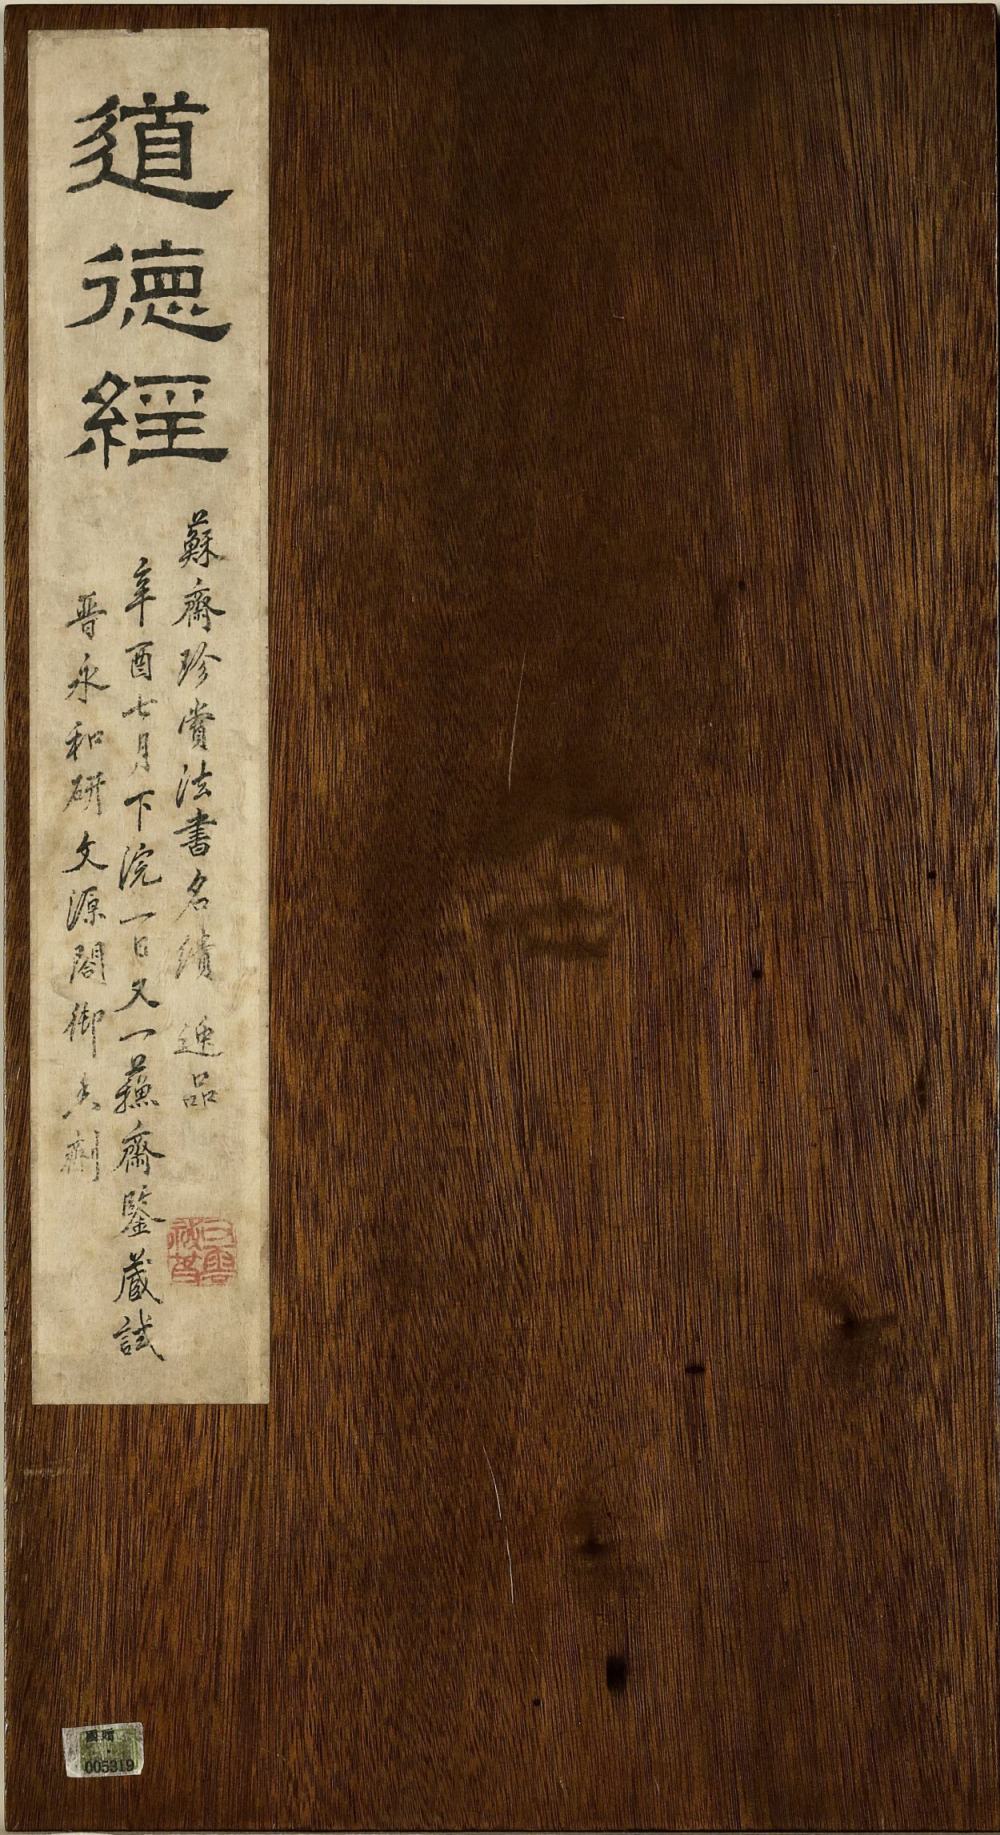 道德經
蘇齋珍賞法書名蹟 逸品
辛酉七月下浣一日又一蘓齋鑒藏試
晋永和研文源閣御香劑
國贈
005319